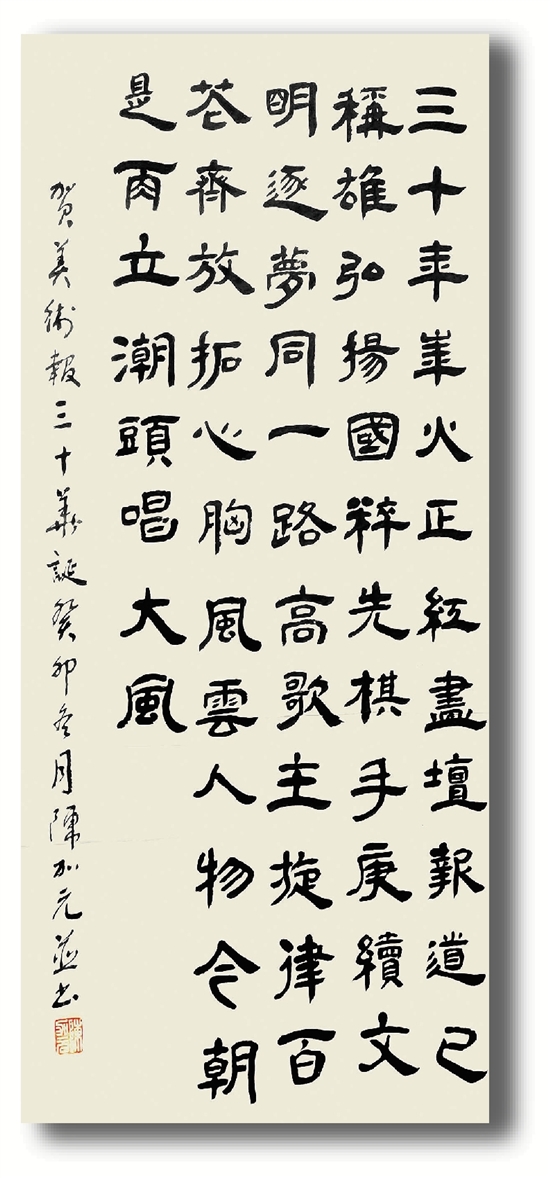 三十年華火正紅畫壇報道已
稱雄弘揚國粹先棋手庚續文
明逐夢同一路高歌主旋律百
花齊放拓心胸風雲人物今朝
是而立潮頭唱大風
賀美術報三十華誕癸卯冬月陳加元並书